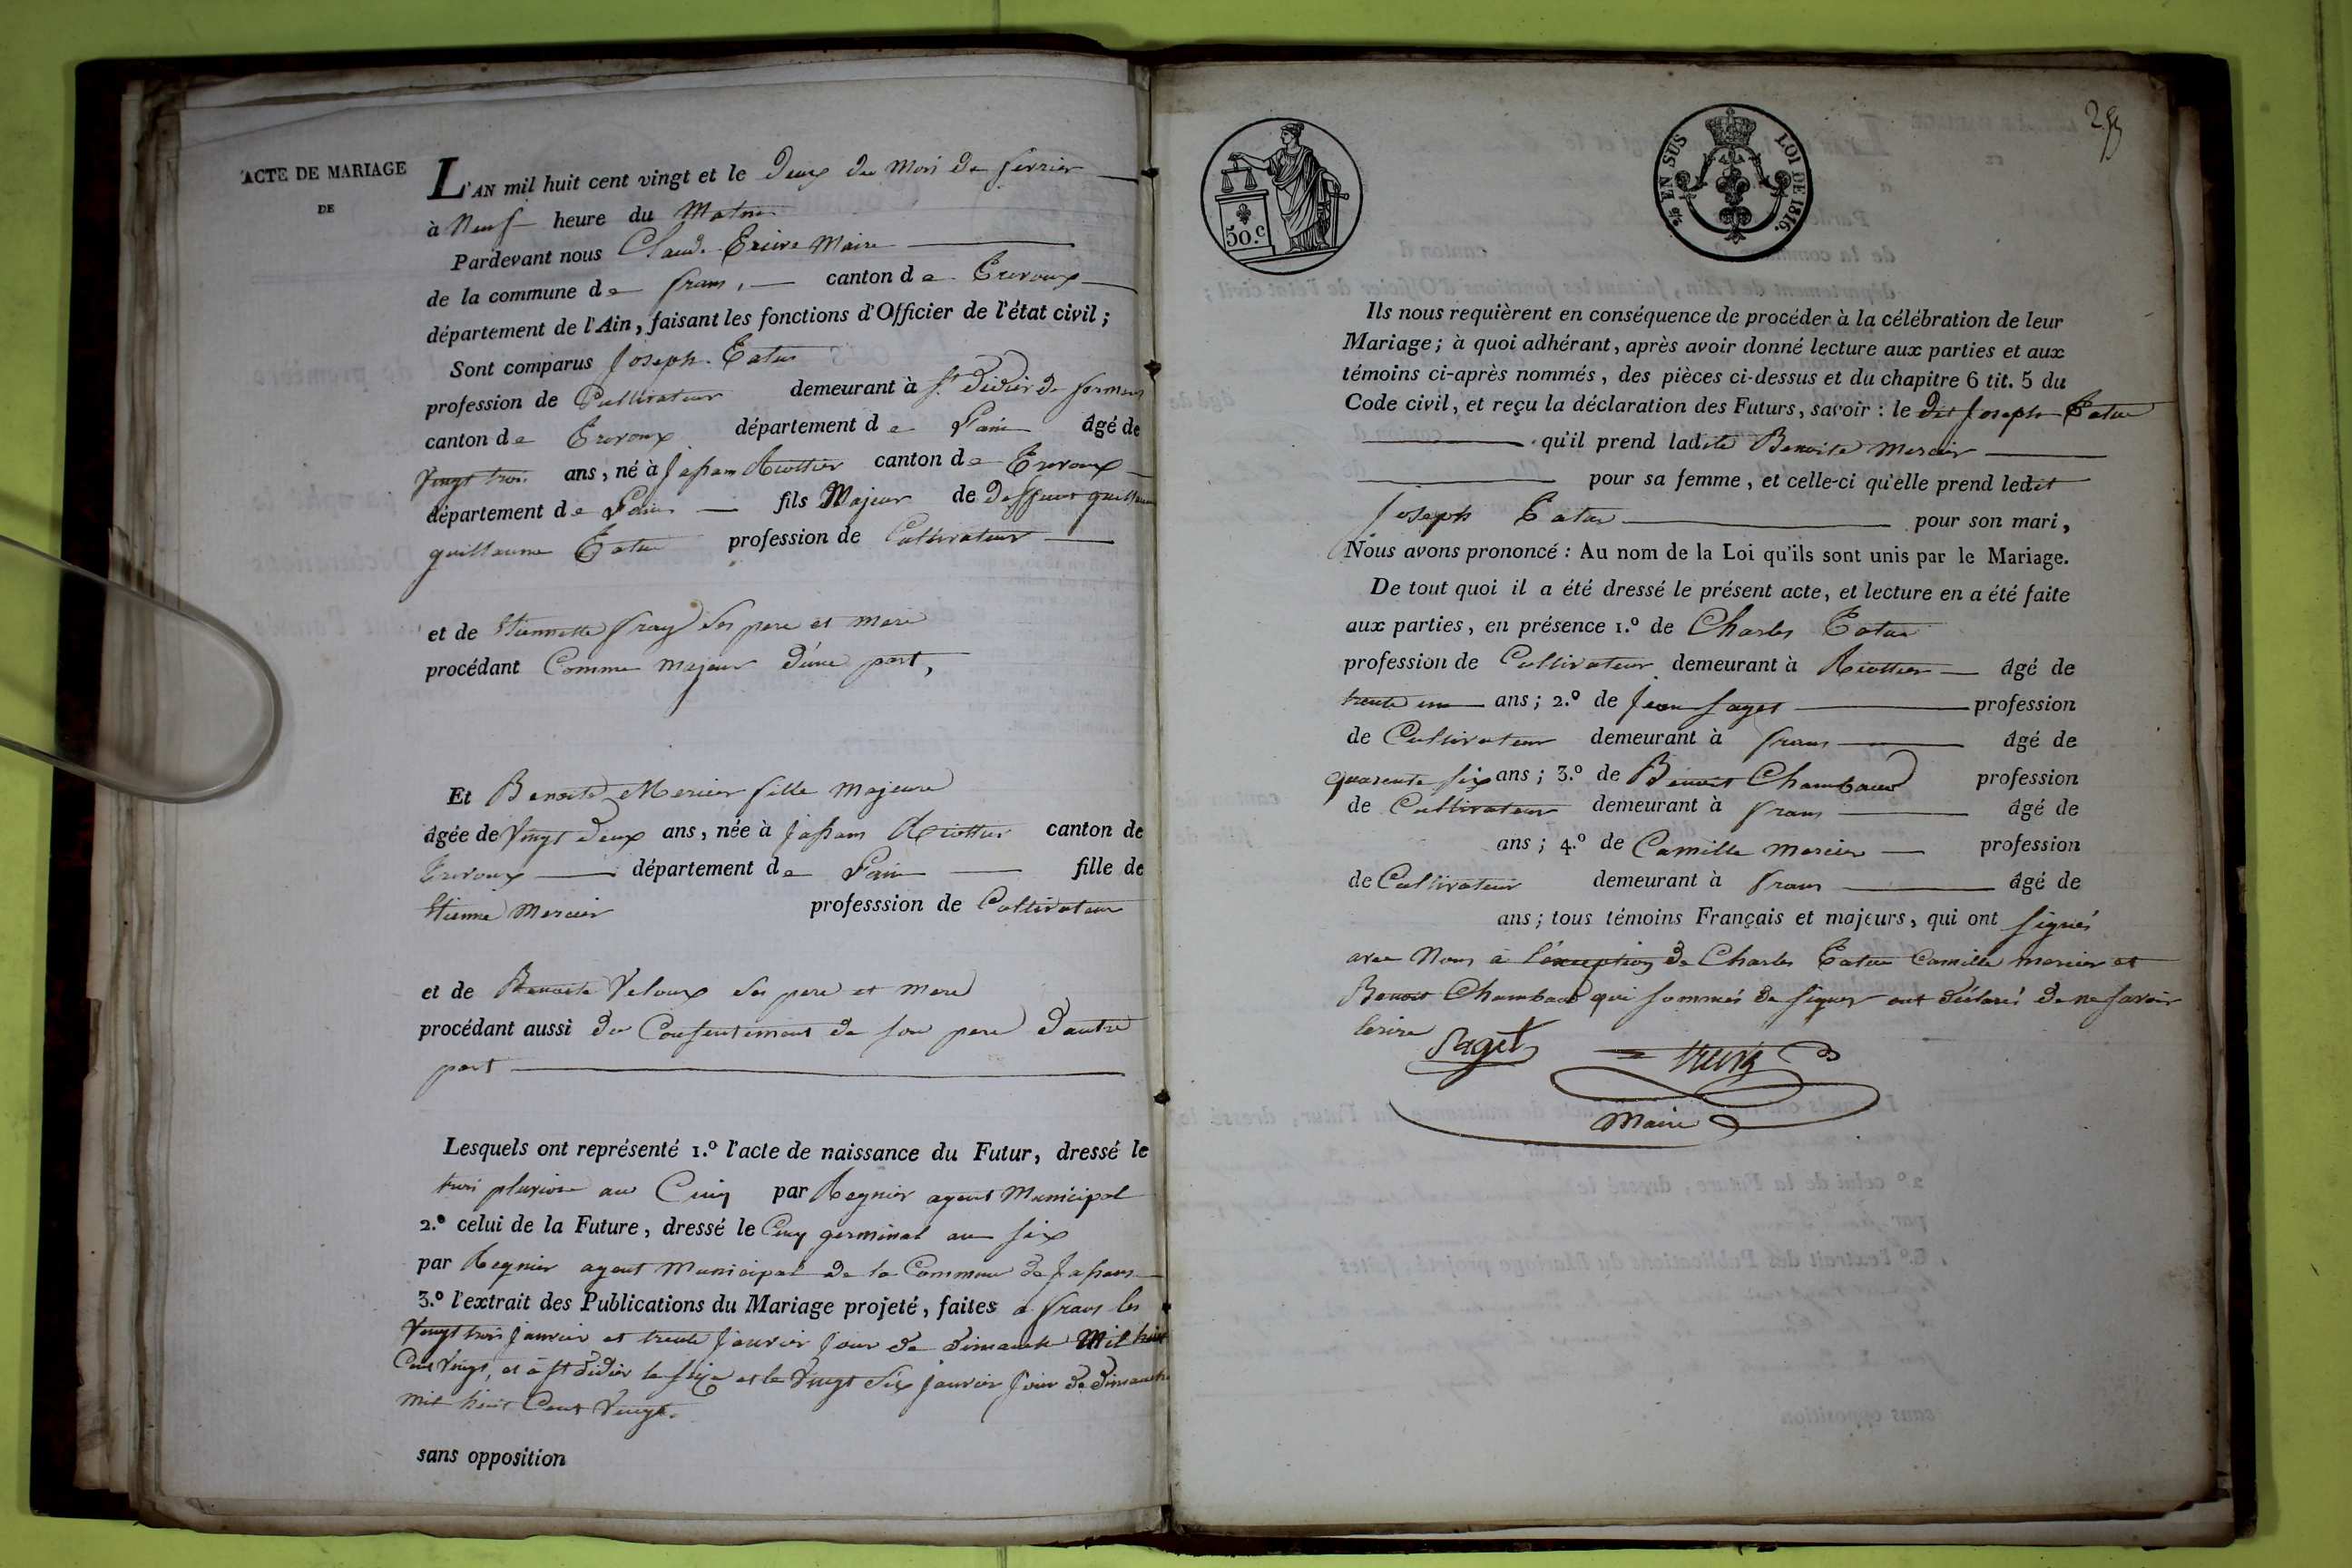 ACTE DE MARIAGE
DE
L'AN mil huit cent vingt et le deux du mois de fevrier
à Neuf heure du Matin
Pardevant nous Claude Maire
de la commune de frans, canton de Trevoux
département de l'Ain, faisant les fonctions d'Officier de l'état civil ;
Sont comparus Joseph Tatu
profession de Cultivateur demeurant à St didier de formens
canton de Trevoux département de l'ain âgé de
vingt trois ans, né à jassans Riottier canton de Trevoux
département de l'ain fils Majeur de deffunt guillaume
guillaume Tatu profession de Cultivateur
et de Etiennette fray ses pere et mere
procédant Comme majeur d'une part,
Et Benoite Mercier fille majeure
âgée de vingt deux ans, née à jassans Riottier canton de
Trevoux département de l'ain fille de
Etienne Mercier professsion de Cultivateur
et de Benoite Veloux ses pere et mere
procédant aussi du Consentement de son pere d'autre
part
Lesquels ont représenté 1.º l'acte de naissance du Futur, dressé le
trois pluviose an Cinq par Regnier agent Municipal
2.º celui de la Future, dressé le Cinq germinal an six
par Regnier agent Municipal de la Commune de Jassans
3.º l'extrait des Publications du Mariage projeté, faites a frans les
vingt trois janvier et trente janvier jour de dimanche Mil huit
Cent vingt, et à St didier le et le vingt six janvier jour de dimanche
mil huit Cent vingt.
sans opposition
50.c
EN SUS
LOI DE 1816.
Ils nous requièrent en conséquence de procéder à la célébration de leur
Mariage ; à quoi adhérant, après avoir donné lecture aux parties et aux
témoins ci-après nommés, des pièces ci-dessus et du chapitre 6 tit. 5 du
Code civil, et reçu la déclaration des Futurs, savoir : le dit Joseph Tatu
qu'il prend ladite Benoite Mercier
pour sa femme, et celle-ci qu'elle prend ledit
Joseph Tatu pour son mari,
Nous avons prononcé : Au nom de la Loi qu'ils sont unis par le Mariage.
De tout quoi il a été dressé le présent acte, et lecture en a été faite
aux parties, en présence 1.º de Charles Tatu
profession de Cultivateur demeurant à Riottier âgé de
trente un ans ; 2.º de Jean Saget profession
de Cultivateur demeurant à frans âgé de
quarente six ans ; 3.º de Benoit Chambaud profession
de Cultivateur demeurant à frans âgé de
ans ; 4.º de Camille Mercier profession
de Cultivateur demeurant à frans âgé de
ans ; tous témoins Français et majeurs, qui ont signés
avec Nous à l'exception de Charles Tatu Camille Mercier et
Benoit Chambaud qui sommés de signer ont déclarés de ne savoir
lecrire
Saget
Maire